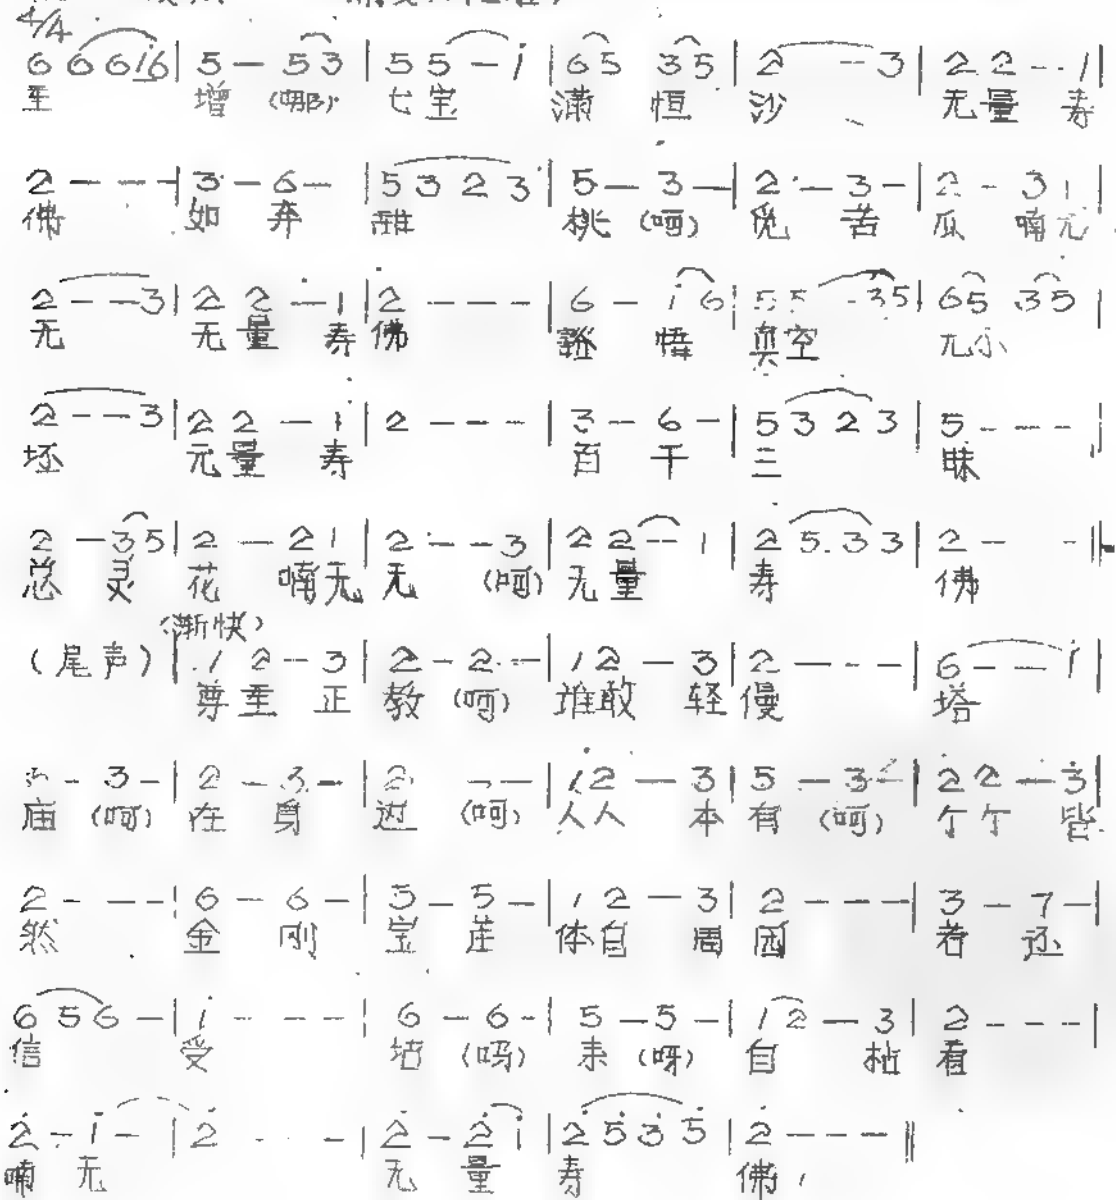 4/4
6 6 6 i 6 | 5 — 5 3 | 5 5 — i | 6 5 3 5 | 2 — 3 | 2 2 - - 1 |
至 增 (哪) 七宝 满 恒 沙 无量 寿
2 — — — | 3 — 6 — | 5 3 2 3 | 5 — 3 — | 2 — 3 — | 2 - 3 1
佛 如 弃 甜 桃 (呵) 觅 苦 瓜 喃无
2 — — 3 | 2 2 — 1 | 2 — — — | 6 — i 6 | 5 5 - 3 5 | 6 5 3 5
无 无量 寿 佛 悟 真空
2 — — 3 | 2 2 — 1 | 2 — — — | 3 — 6 — | 5 3 2 3 | 5 - - - |
坯 无量 寿 百 千 三 昧
2 — 3 5 | 2 — 2 1 | 2 — — 3 | 2 2 — 1 | 2 5. 3 3 | 2 — - ‖
总 灵 花 喃无 无 (呵) 无量 寿 佛
(渐快)
(尾声) | 1 2 — 3 | 2 — 2 — | 1 2 — 3 | 2 — — — | 6 — — i |
尊至 正 教 (呵) 谁敢 轻 慢 塔
3 - 3 - | 2 — 3 — | 2 — — | 1 2 — 3 | 5 — 3 2 | 2 2 — 3 |
庙 (呵) 在 身 边 (呵) 人人 本 有 (呵) 个个 皆
2 - — - | 6 — 6 — | 5 — 5 — | 1 2 — 3 | 2 — — — | 3 — 7 — |
然 金 刚 宝 座 体自 周 园 若 还
6 5 6 — | i - - - | 6 — 6 - | 5 — 5 — | 1 2 — 3 | 2 - - - |
信 受 (吗) 来 (呀) 自 拈 看
2 — i — | 2 - - - | 2 — 2 i | 2 5 3 5 | 2 — — — ‖
喃 无 无 量 寿 佛